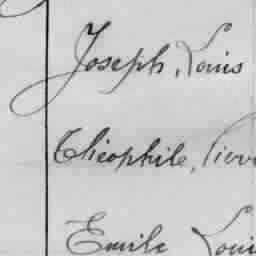 Joseph, Louis
Théophile, Pierr
Emile Loui